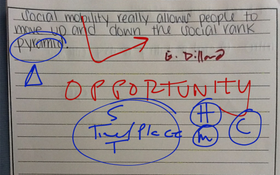 Social mobility really allows people to
move up and down the social rank
pyramid.
G. Dillard
OPPORTUNITY
S
Time/Place
T
H
M
C